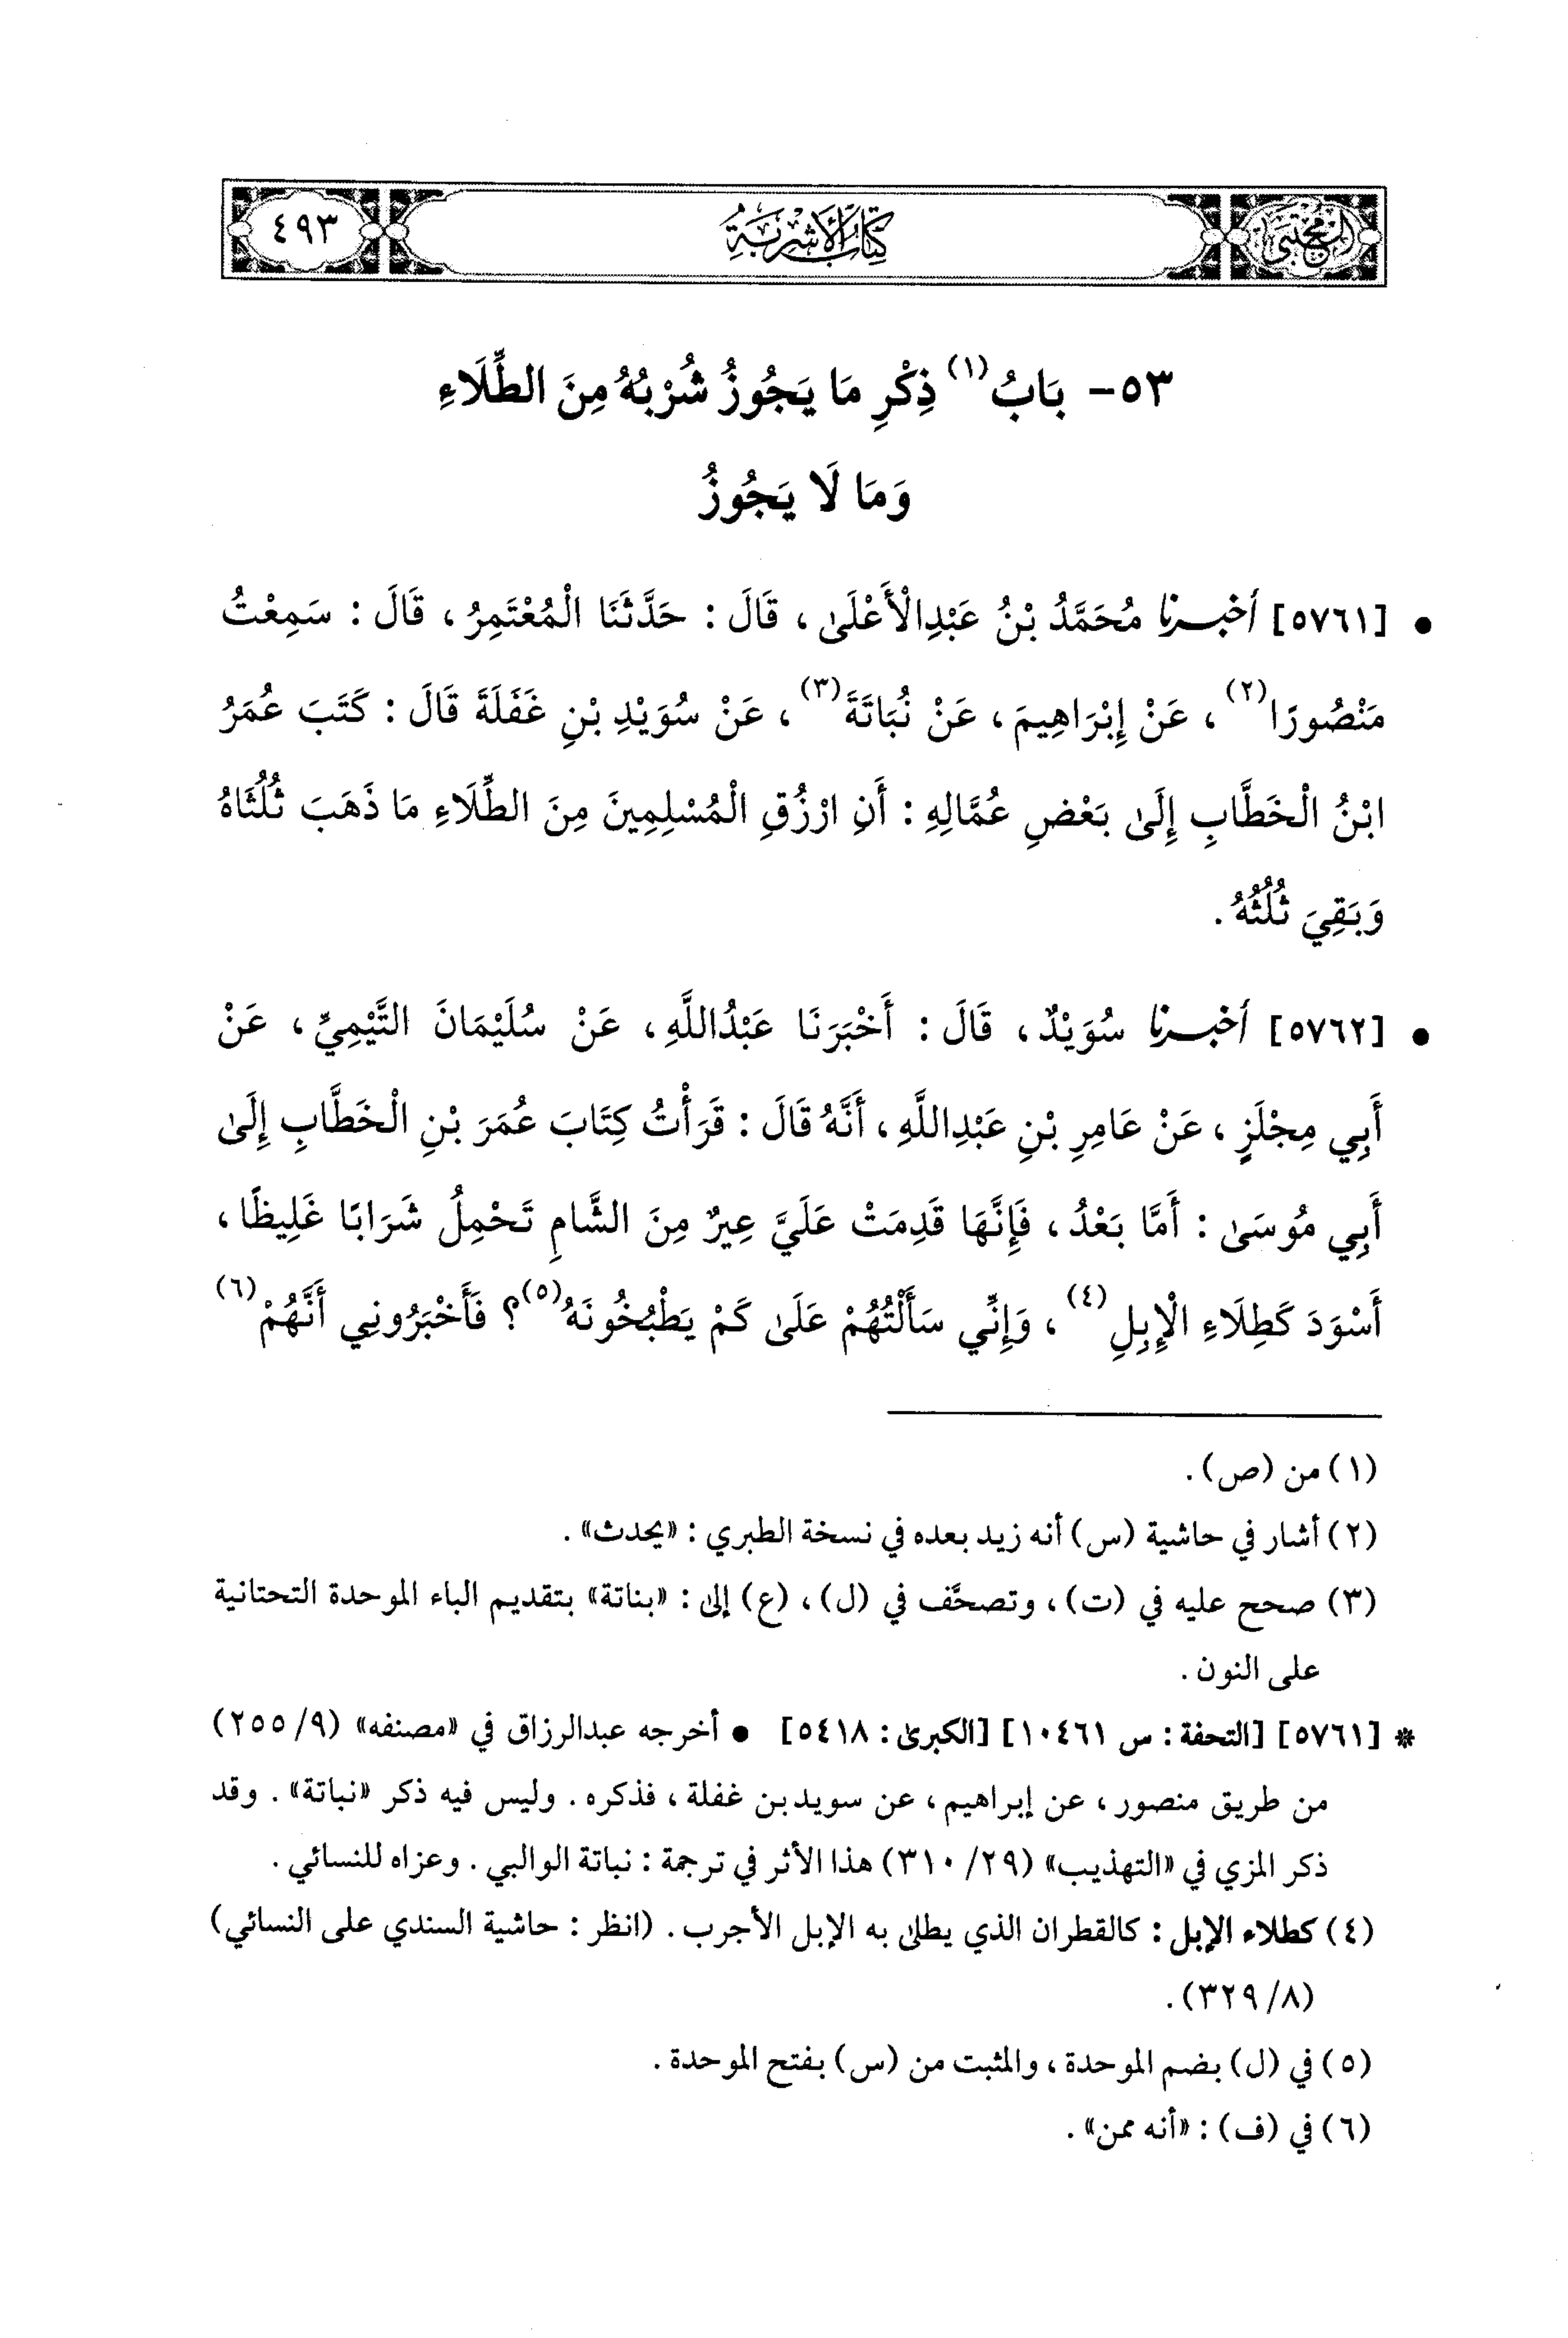 المجتبى
كتاب الأشربة
٤٩٣
٥٣- بَابُ(١) ذِكْرِ مَا يَجُوزُ شُرْبُهُ مِنَ الطِّلَاءِ
وَمَا لَا يَجُوزُ
• [٥٧٦١] أخبرنا مُحَمَّدُ بْنُ عَبْدِالْأَعْلَى، قَالَ: حَدَّثَنَا الْمُعْتَمِرُ، قَالَ: سَمِعْتُ
مَنْصُورًا(٢)، عَنْ إِبْرَاهِيمَ، عَنْ نُبَاتَةَ(٣)، عَنْ سُوَيْدِ بْنِ غَفَلَةَ قَالَ: كَتَبَ عُمَرُ
ابْنُ الْخَطَّابِ إِلَى بَعْضِ عُمَّالِهِ: أَنِ ارْزُقِ الْمُسْلِمِينَ مِنَ الطِّلَاءِ مَا ذَهَبَ ثُلُثَاهُ
وَبَقِيَ ثُلُثُهُ.
• [٥٧٦٢] أخبرنا سُوَيْدٌ، قَالَ: أَخْبَرَنَا عَبْدُاللَّهِ، عَنْ سُلَيْمَانَ التَّيْمِيِّ، عَنْ
أَبِي مِجْلَزٍ، عَنْ عَامِرِ بْنِ عَبْدِاللَّهِ، أَنَّهُ قَالَ: قَرَأْتُ كِتَابَ عُمَرَ بْنِ الْخَطَّابِ إِلَى
أَبِي مُوسَى: أَمَّا بَعْدُ، فَإِنَّهَا قَدِمَتْ عَلَيَّ عِيرٌ مِنَ الشَّامِ تَحْمِلُ شَرَابًا غَلِيظًا،
أَسْوَدَ كَطِلَاءِ الْإِبِلِ(٤)، وَإِنِّي سَأَلْتُهُمْ عَلَى كَمْ يَطْبُخُونَهُ(٥)؟ فَأَخْبَرُونِي أَنَّهُمْ(٦)
(١) من (ص).
(٢) أشار في حاشية (س) أنه زيد بعده في نسخة الطبري: «يحدث».
(٣) صحح عليه في (ت)، وتصحَّف في (ل)، (ع) إلى: «بناتة» بتقديم الباء الموحدة التحتانية
على النون.
* [٥٧٦١] [التحفة: س ١٠٤٦١] [الكبرى: ٥٤١٨] • أخرجه عبدالرزاق في «مصنفه» (٩/ ٢٥٥)
من طريق منصور، عن إبراهيم، عن سويد بن غفلة، فذكره. وليس فيه ذكر «نباتة». وقد
ذكر المزي في «التهذيب» (٢٩/ ٣١٠) هذا الأثر في ترجمة: نباتة الوالبي. وعزاه للنسائي.
(٤) كطلاء الإبل: كالقطران الذي يطلى به الإبل الأجرب. (انظر: حاشية السندي على النسائي)
(٨/ ٣٢٩).
(٥) في (ل) بضم الموحدة، والمثبت من (س) بفتح الموحدة.
(٦) في (ف): «أنه ممن».